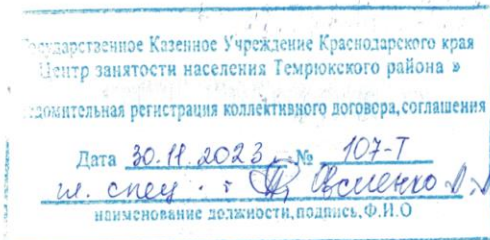 Государственное Казенное Учреждение Краснодарского края
Центр занятости населения Темрюкского района »
едомительная регистрация коллективного договора, соглашения
Дата 30.11.2023 № 107-Т
гл. спец.
наименование должности, подпись, Ф.И.О